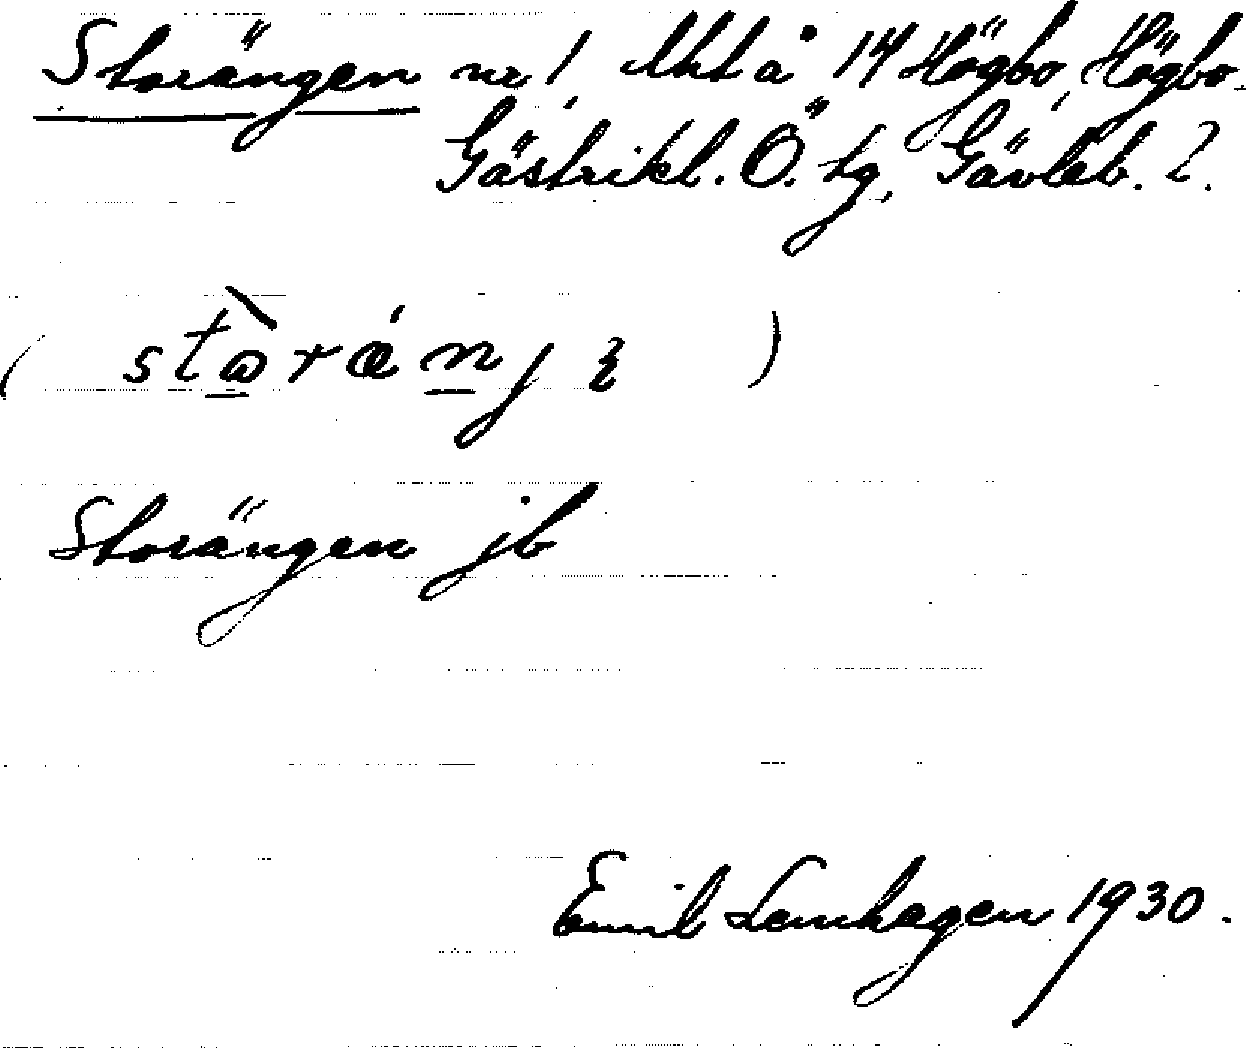 Storängen nr 1 Mtl å 14 Högbo, Högbo.
Gästrikl. Ö. tg, Gävleb. l.
( stòrä́njε )
Storängen jb
Emil Lemhagen 1930.